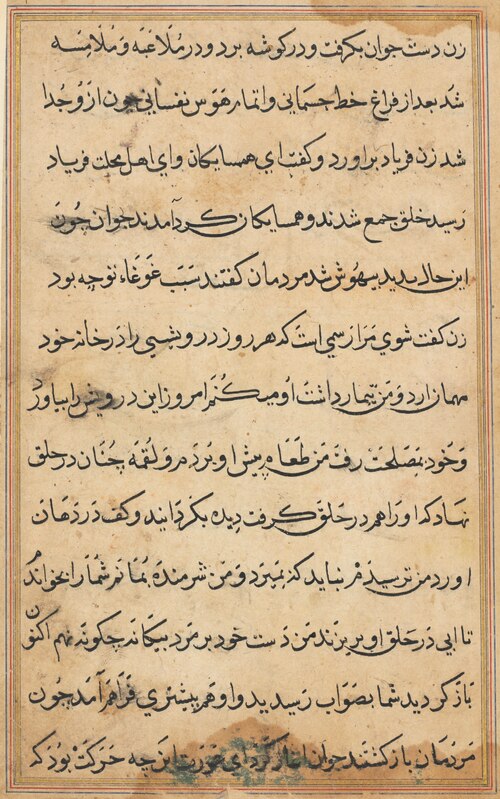 زن دست جوان بكرفت و در كوشه برد و در ملاعبه و ملامسه
شد بعد از فراغ خط جسمانی و اتمام هوس نفسانی چون ازو جدا
شد زن فریاد براورد و كفت ای همسایكان و ای اهل محلت فریاد
رسید خلق جمع شدند و همسایكان كرد آمدند جوان چون
این حال بدید بیهوش شد مردمان كفتند سبب غوغاء تو چه بود
زن كفت شوی مرا رسمی است كه هر روز درویشی را در خانه خود
مهمان ارد و من تیمار داشت او میكنم امروز این درویش را بیاورد
و خود بمصلحت رفت من طعام پیش او بردم و لقمه چنان در حلق
نهاد كه او را هم در حلق كرفت دیده بكردانید و كف در دهان
اورد من ترسیدم نباید كه بمیرد و من شرمنده بمانم شما را بخواندم
تا ابی در حلق او بریزند من دست خود بر مرد بیكانه چكونه نهم اكنون
باز كردید شما بصواب رسیدید و او هم پیشتری فراهم آمد چون
مردمان باز كشتند جوان اغاز كرد ای عورت این چه حركت بود كه